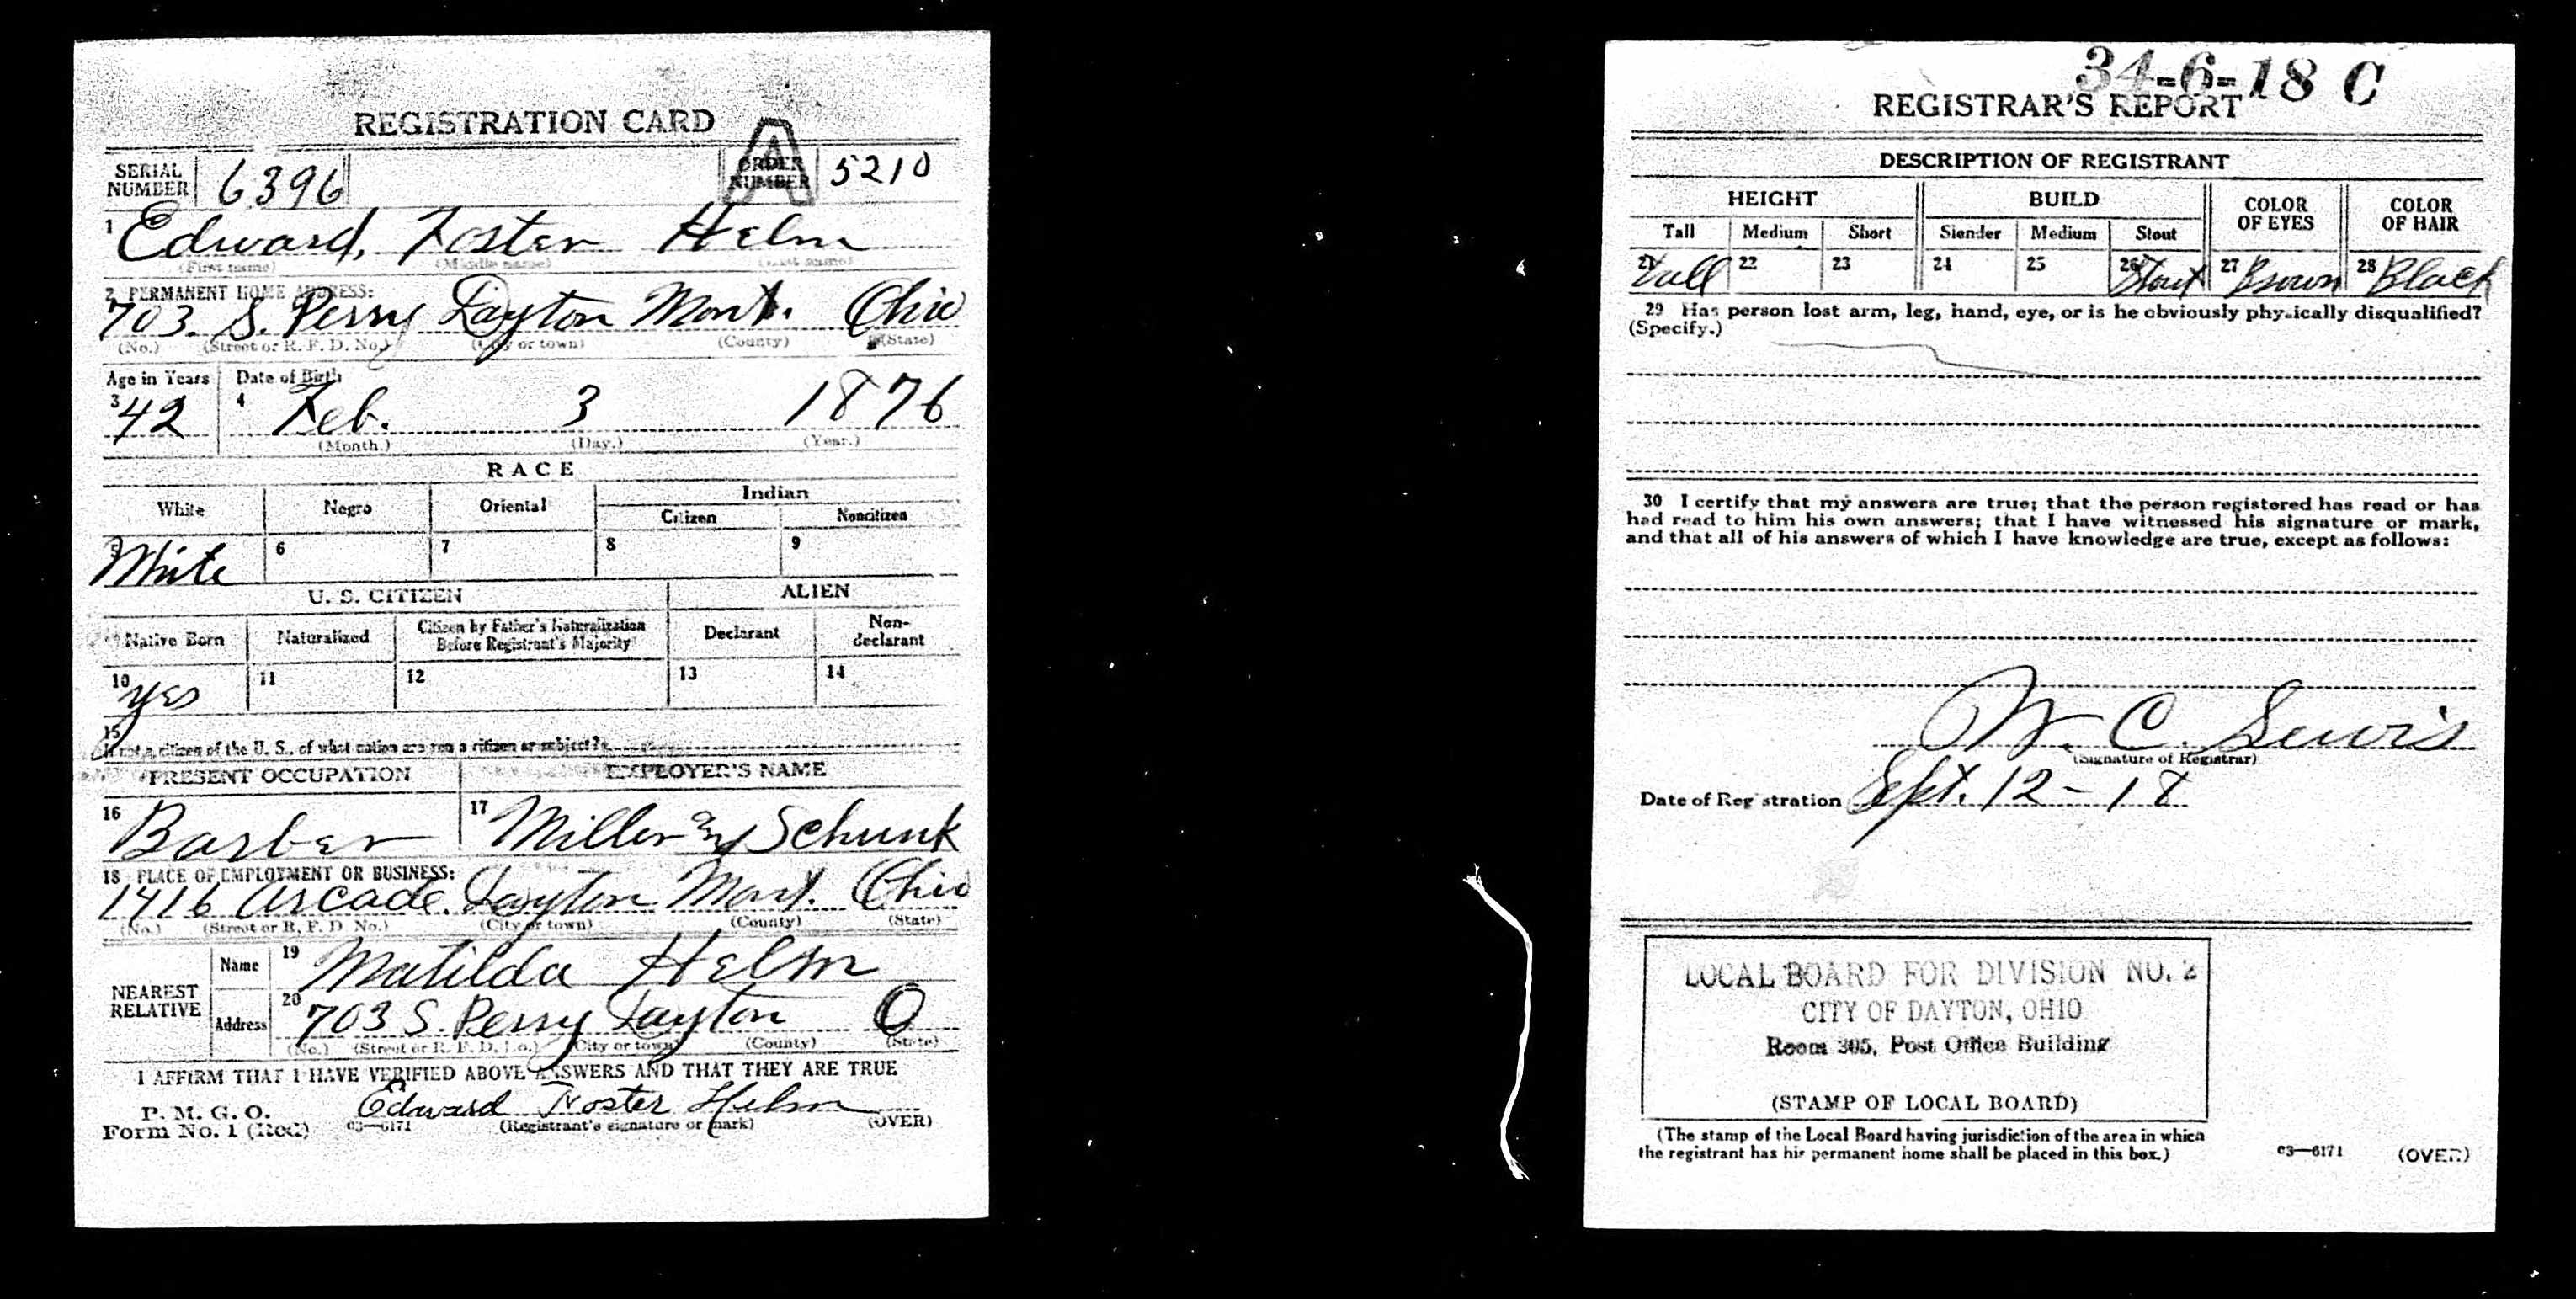 REGISTRATION CARD
SERIAL NUMBER 6396 ORDER NUMBER 5210
A
1 Edward, Foster Helm
(First name) (Middle name) (Last name)
2 PERMANENT HOME ADDRESS:
703. S. Perry Dayton Mont. Ohio
(No.) (Street or R. F. D. No.) (City or town) (County) (State)
Age in Years Date of Birth
3 42 4 Feb. 3 1876
(Month.) (Day.) (Year.)
RACE
White Negro Oriental Indian
Citizen Noncitizen
5 White 6 7 8 9
U. S. CITIZEN ALIEN
Native Born Naturalized Citizen by Father's Naturalization Before Registrant's Majority Declarant Non-declarant
10 yes 11 12 13 14
15 If not a citizen of the U. S., of what nation are you a citizen or subject?
PRESENT OCCUPATION EMPLOYER'S NAME
16 Barber 17 Miller and Schunk
18 PLACE OF EMPLOYMENT OR BUSINESS:
1416 Arcade. Dayton Mont. Ohio
(No.) (Street or R. F. D. No.) (City or town) (County) (State)
NEAREST RELATIVE Name 19 Matilda Helm
Address 20 703 S. Perry Dayton O
(No.) (Street or R. F. D. No.) (City or town) (County) (State)
I AFFIRM THAT I HAVE VERIFIED ABOVE ANSWERS AND THAT THEY ARE TRUE
P. M. G. O.
Form No. 1 (Red) 03—6171 Edward Foster Helm
(Registrant's signature or mark) (OVER)
34-6-18 C
REGISTRAR'S REPORT
DESCRIPTION OF REGISTRANT
HEIGHT BUILD COLOR OF EYES COLOR OF HAIR
Tall Medium Short Slender Medium Stout
21 Tall 22 23 24 25 26 Stout 27 Brown 28 Black
29 Has person lost arm, leg, hand, eye, or is he obviously physically disqualified?
(Specify.)
30 I certify that my answers are true; that the person registered has read or has
had read to him his own answers; that I have witnessed his signature or mark,
and that all of his answers of which I have knowledge are true, except as follows:
W. C. Lewis
(Signature of Registrar)
Date of Registration Sept. 12 - 18
LOCAL BOARD FOR DIVISION NO. 2
CITY OF DAYTON, OHIO
Room 305, Post Office Building
(STAMP OF LOCAL BOARD)
(The stamp of the Local Board having jurisdiction of the area in which
the registrant has his permanent home shall be placed in this box.)
03—6171 (OVER)